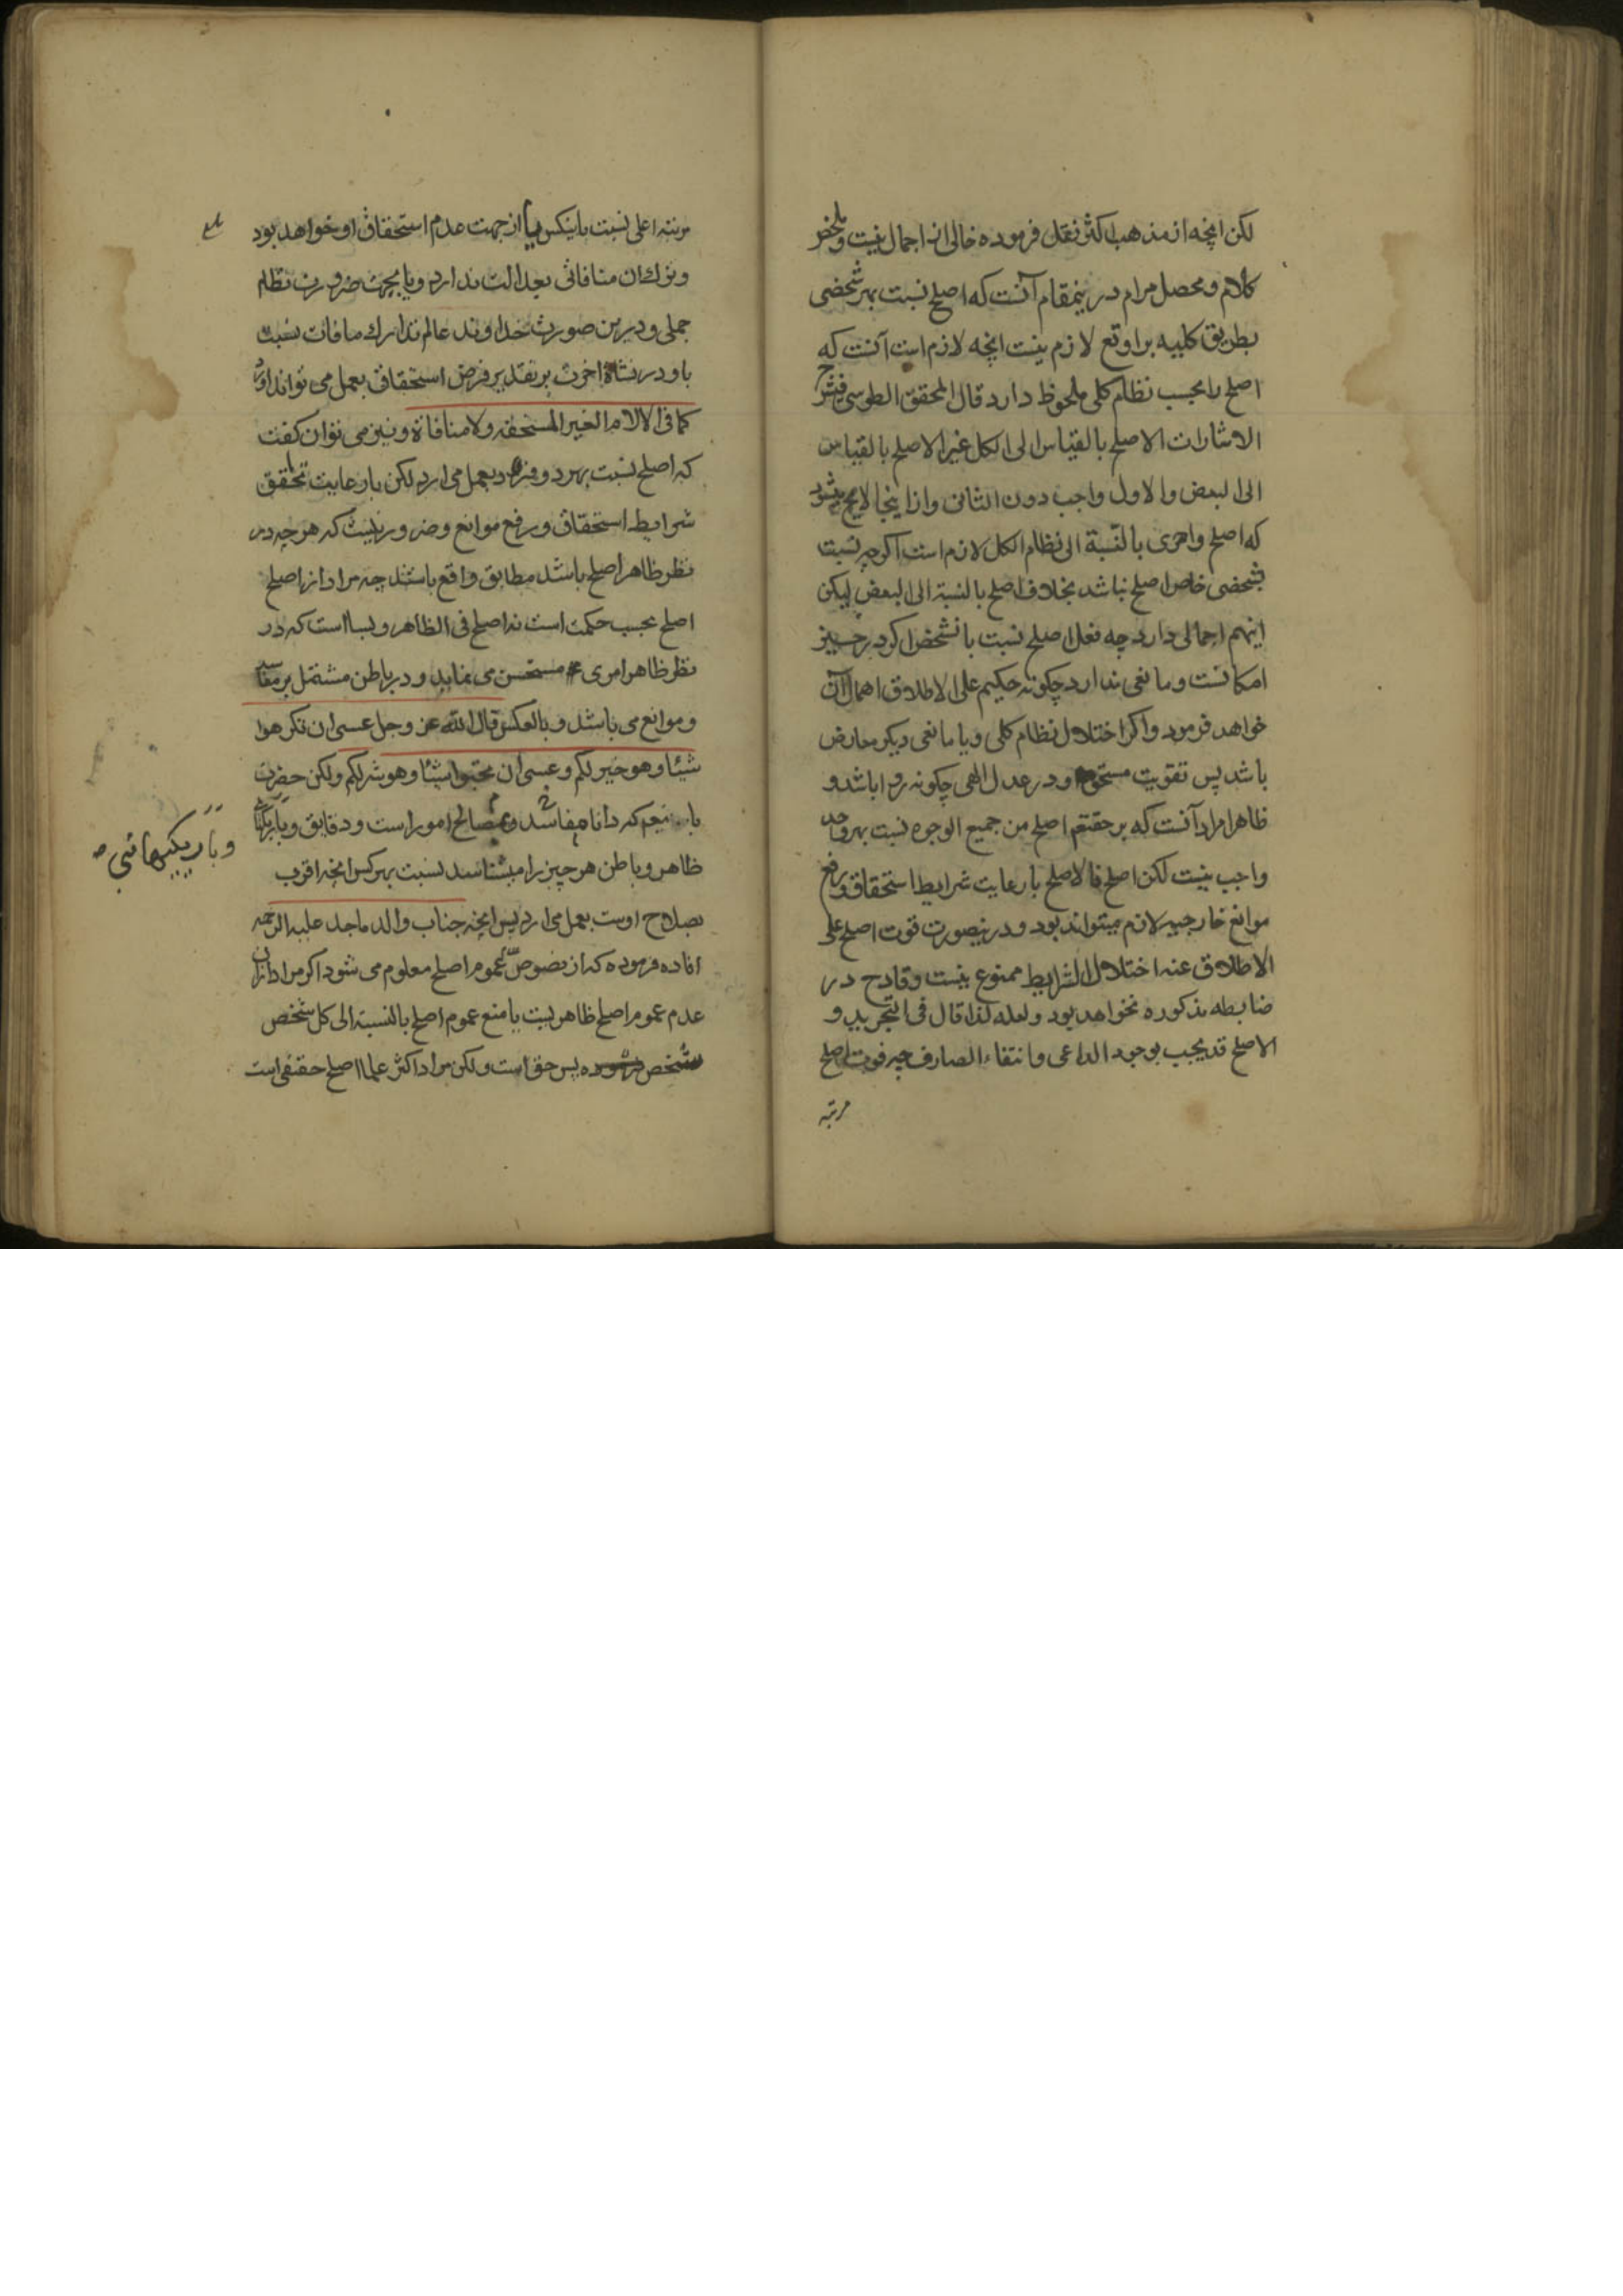 لکن انچه از مذهب اکثر نقل فرموده خالی از اجمال نیست و ملخص
کلام و محصل مرام درینمقام آنست که اصلح نسبت بهر شخصی
بطریق کلیه بر او تع لازم نیست انچه لازم است آنست که
اصلح را بحسب نظام کلی ملحوظ دارد قال المحقق الطوسی فی شرح
الاشارات الاصلح بالقیاس الی الکل غیر الاصلح بالقیاس
الی البعض والاول واجب دون الثانی و از اینجا لایح میشود
که اصلح واحری بالنسبة الی نظام الکل لازم است اگرچه نسبت
بشخصی خاص اصلح نباشد بخلاف اصلح بالنسبة الی البعض لیکن
اینهم اجمالی دارد چه فعل اصلح نسبت بانشخص اگر در حیز
امکانست و مانعی ندارد چگونه حکیم علی الاطلاق اهمال آن
خواهد فرمود و اگر اختلال نظام کلی و یا مانعی دیگر معارض
باشد پس تفویت مستحق او در عدل الهی چگونه روا باشد و
ظاهرا مراد آنست که بر حقتعم اصلح من جمیع الوجوه نسبت بهر واحد
واجب نیست لکن اصلح فالاصلح بارعایت شرایط استحقاق و رفع
موانع خارجیه لازم میتواند بود و درینصورت فوت اصلح علی
الاطلاق عند اختلال الشرایط ممنوع نیست و قادح در
ضابطه مذکوره نخواهد بود ولعله لذا قال فی التجرید و
الاصلح قد یجب بوجود الداعی وانتفاء الصارف چه فوت اصلح
مرتبه
مرتبه اعلی نسبت باینکس یا از جهت عدم استحقاق او خواهد بود
و ترک ان منافاتی بعدالت ندارد و یا بجهت ضرورت نظام
جملی و درین صورت خداوند عالم تدارک مافات نسبت
باو در نشاة اخرت بر تقدیر فرض استحقاق بعمل می تواند اورد
کما فی الالام الغیر المستحقه ولا منافاة و نیز می توان گفت
که اصلح نسبت بهر فرد بعمل می ارد لکن بارعایت تحقق
شرایط استحقاق و رفع موانع و ضرور نیست که هر چه در
نظر ظاهر اصلح باشد مطابق واقع باشد چه مراد از اصلح
اصلح بحسب حکمت است نه اصلح فی الظاهر و بسا است که در
نظر ظاهر امری مستحسن می نماید و در باطن مشتمل بر مفاسد
و موانع می باشد و بالعکس قال الله عز وجل عسی ان تکرهوا
شیئا وهو خیر لکم وعسی ان تحبوا شیئا وهو شر لکم ولکن حضرت
که دانا مفاسد و مصالح امور است و دقایق و
و باریکیهائی
ظاهر و باطن هر چیز را میشناسد نسبت بهر کس انچه اقرب
بصلاح اوست بعمل می ارد پس انچه جناب والد ماجد علیه الرحمه
افاده فرموده که از نصوص عموم اصلح معلوم می شود اگر مراد ازان
عدم عموم اصلح ظاهریست یا منع عموم اصلح بالنسبة الی کل شخص
شخص پس حق است ولکن مراد اکثر علما اصلح حقیقی است